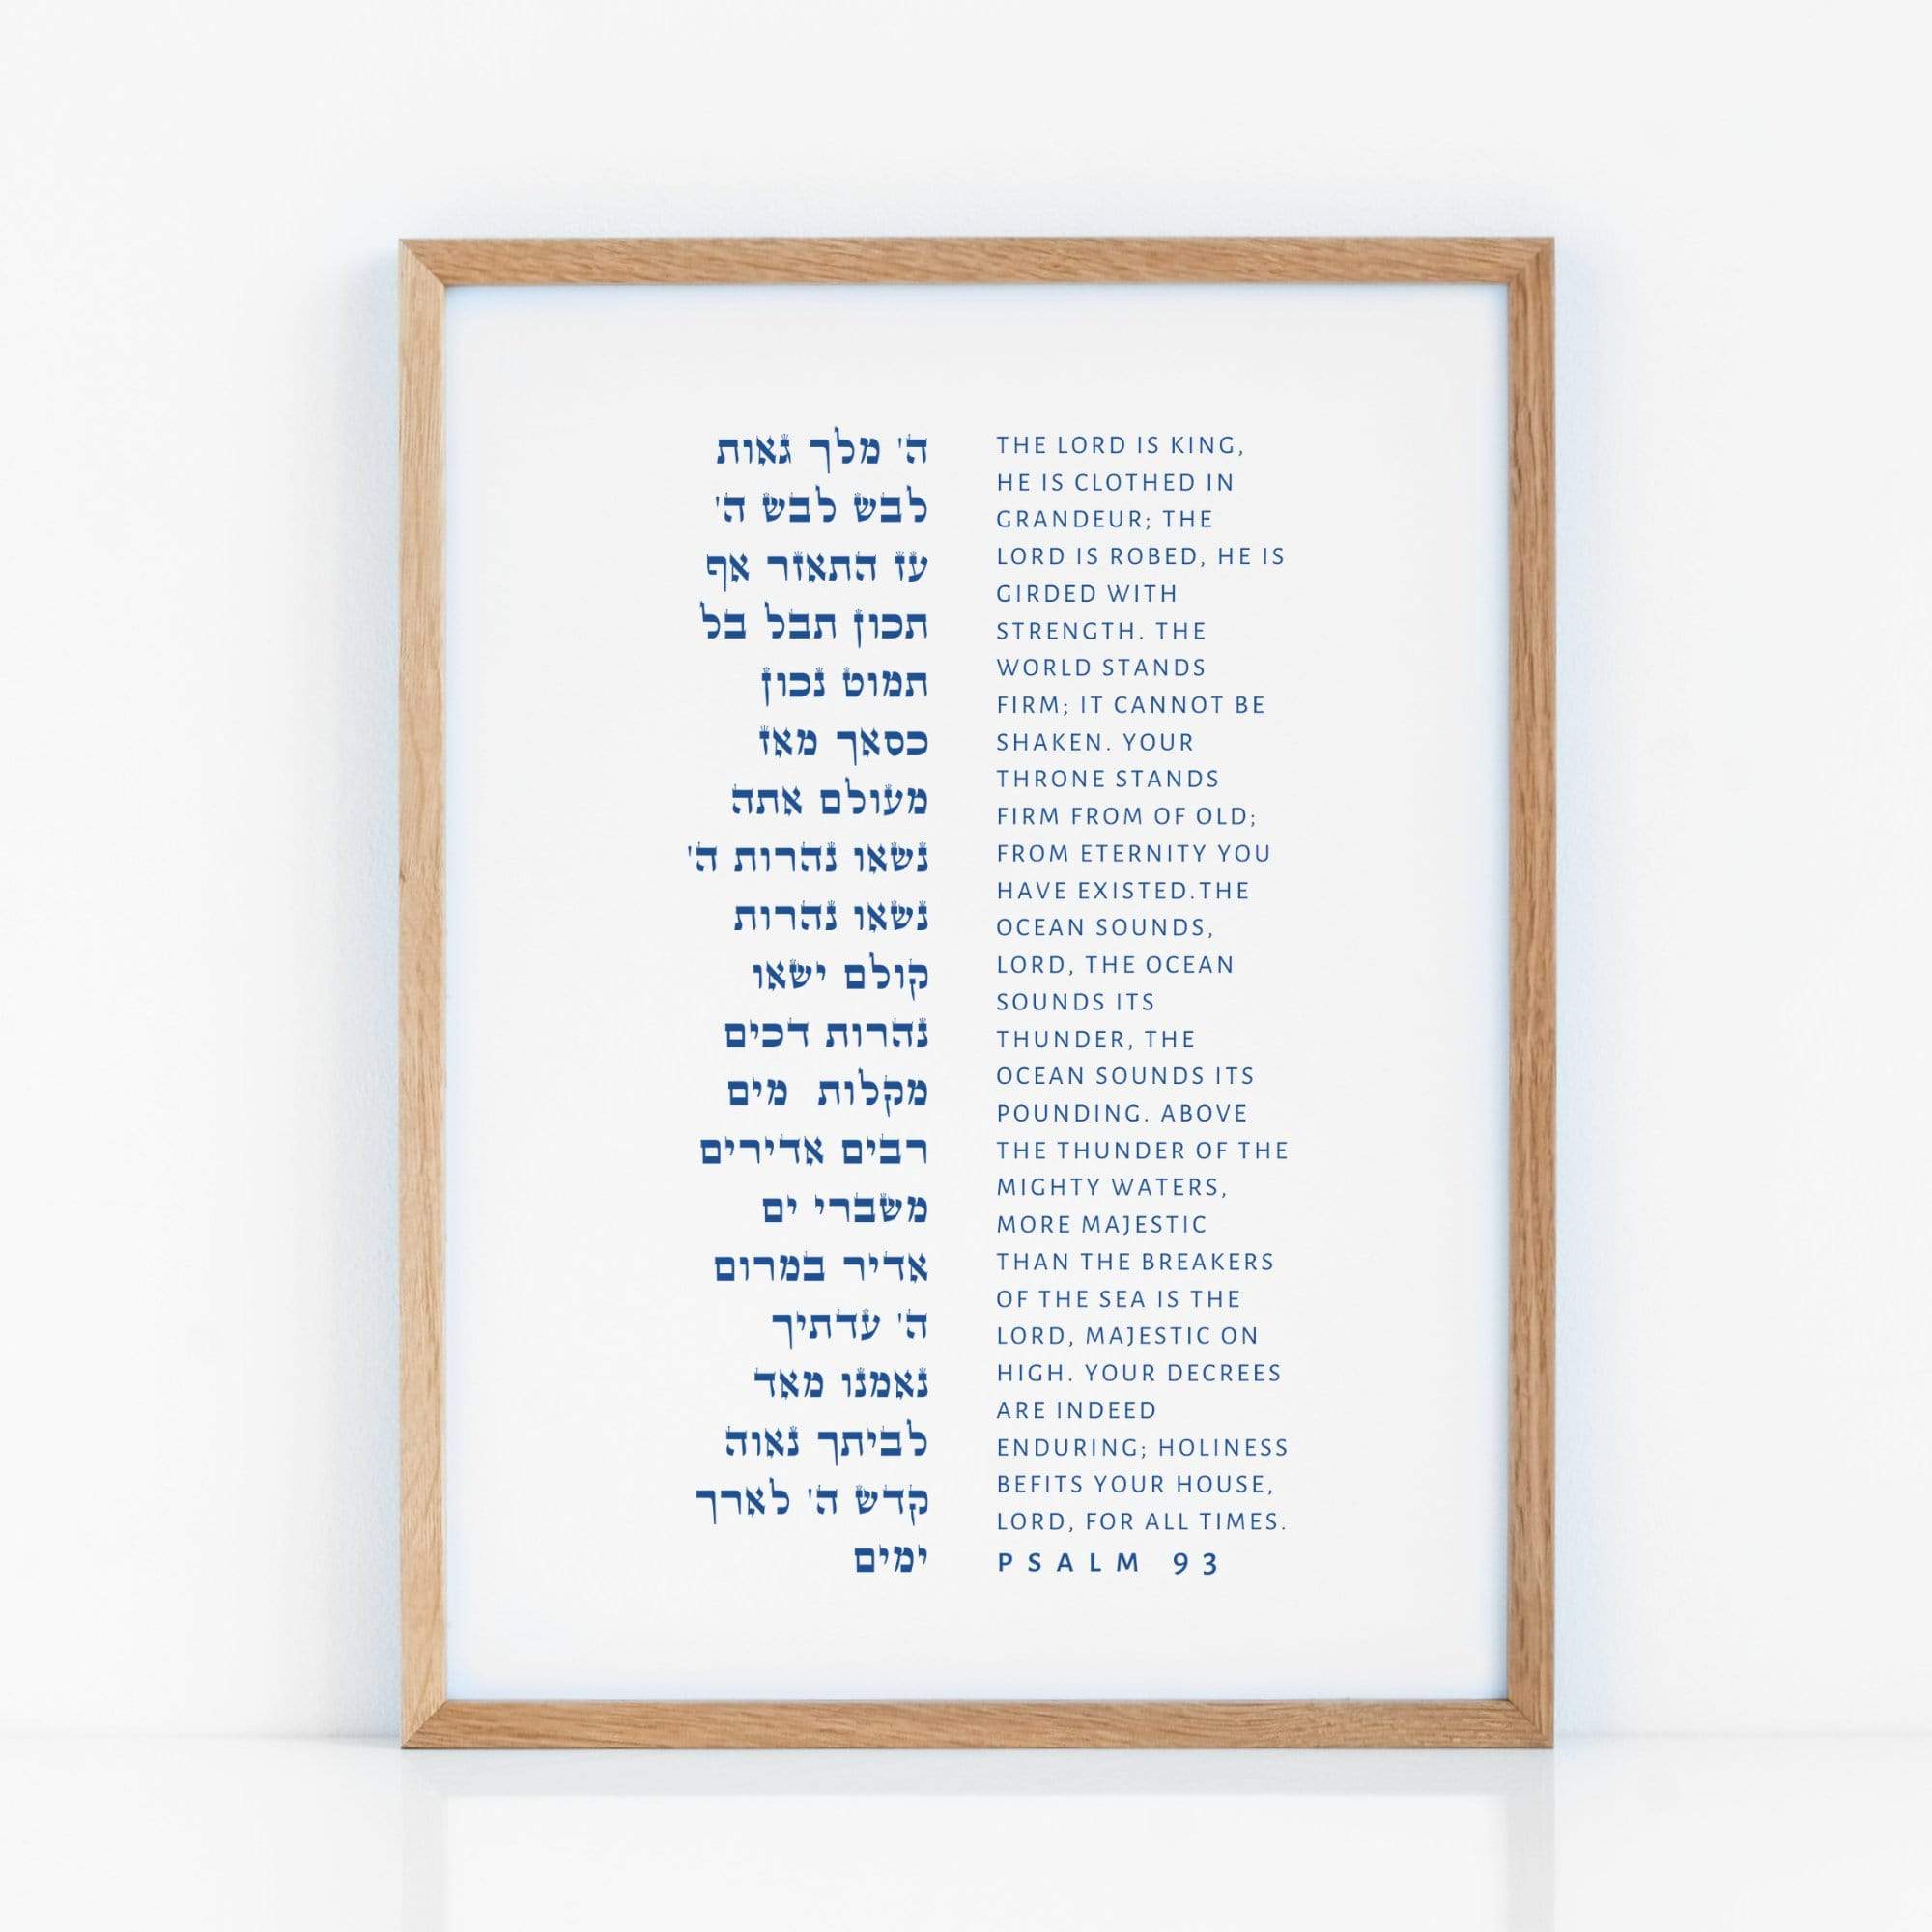 ה' מלך גאות
לבש לבש ה'
עז התאזר אף
תכון תבל בל
תמוט נכון
כסאך מאז
מעולם אתה
נשאו נהרות ה'
נשאו נהרות
קולם ישאו
נהרות דכים
מקלות מים
רבים אדירים
משברי ים
אדיר במרום
ה' עדתיך
נאמנו מאד
לביתך נאוה
קדש ה' לארך
ימים
THE LORD IS KING,
HE IS CLOTHED IN
GRANDEUR; THE
LORD IS ROBED, HE IS
GIRDED WITH
STRENGTH. THE
WORLD STANDS
FIRM; IT CANNOT BE
SHAKEN. YOUR
THRONE STANDS
FIRM FROM OF OLD;
FROM ETERNITY YOU
HAVE EXISTED.THE
OCEAN SOUNDS,
LORD, THE OCEAN
SOUNDS ITS
THUNDER, THE
OCEAN SOUNDS ITS
POUNDING. ABOVE
THE THUNDER OF THE
MIGHTY WATERS,
MORE MAJESTIC
THAN THE BREAKERS
OF THE SEA IS THE
LORD, MAJESTIC ON
HIGH. YOUR DECREES
ARE INDEED
ENDURING; HOLINESS
BEFITS YOUR HOUSE,
LORD, FOR ALL TIMES.
PSALM 93